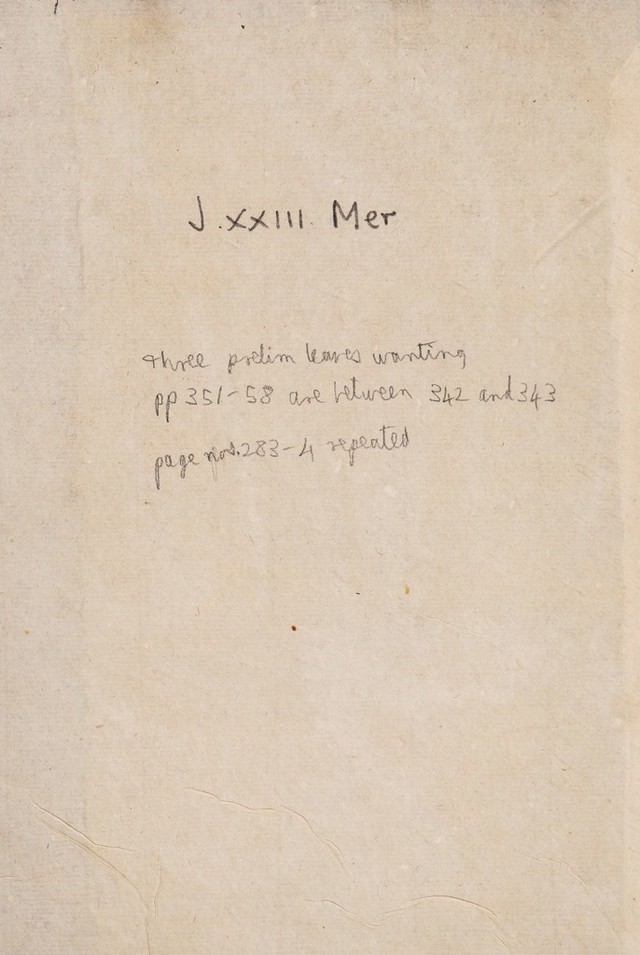 J.XXIII. Mer
three prelim leaves wanting
pp 351-58 are between 342 and 343
page nos. 283-4 repeated